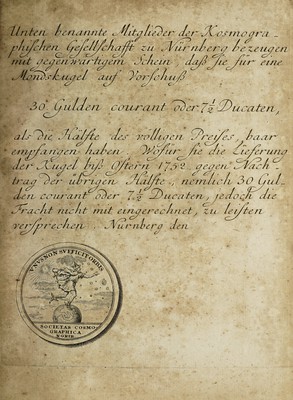 Unten benannte Mitglieder der Kosmogra-
phischen Gesellschafft zu Nürnberg bezeugen
mit gegenwärtigem Schein, daß sie für eine
Mondskugel auf Vorschuß
30 Gulden courant oder 7½ Ducaten,
als die Hälfte des völligen Preises, baar
empfangen haben. Wofür sie die Lieferung
der Kugel biß Ostern 1752 gegen Nach-
trag der übrigen Hälfte, nemlich 30 Gul-
den courant oder 7½ Ducaten, jedoch die
Fracht nicht mit eingerechnet, zu leisten
versprechen. Nürnberg den
VNVS NON SVFICIT ORBIS
SOCIETAS COSMO-
GRAPHICA
NORIB